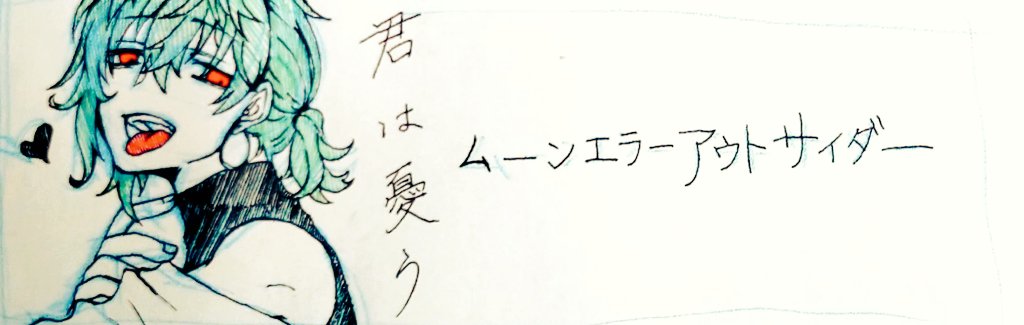 君は憂う
ムーンエラーアウトサイダー